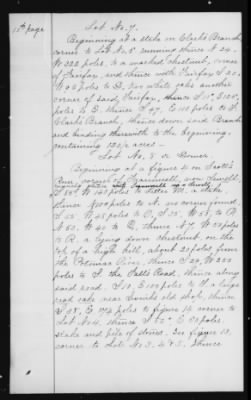 15th page
Lot No. 7.
Beginning at a stake on Clarks Branch,
corner to Lot No. 5 running thence N. 24.
W. 222 poles, to a marked chestnut, corner
of Fairfax, and thence with Fairfax S. 20.
W. 90 poles to D. two white oaks another
corner of said Fairfax, thence S. 15° E. 105.
poles to E. thence S. 27. E. 110 poles to F.
Clarks Branch, thence down said Branch
and binding therewith to the beginning,
containing 120½ acres.
Lot No. 8 or Dower.
Beginning at a figure 4 on Scott's
Run, corner of
S. 55° W. 140 poles to letter M. a stake.
thence N. 100 poles to N. six corner found
S. 55° W. 45 poles to O, S. 25. W. 53, to P.
S. 50. W. 40 to Q. thence N. 7. W. 20 poles
to R. a large down chestnut on the
top of a high hill, about 20 poles from
the Potomac River, thence S. 20, W. 220
poles to S. the Falls Road, thence along
said road. S. 10. E. 100 poles to T. a large
read oake near old shop, thence
S. 28. E. 174 poles to figure 14 corner to
Lot No. 4. thence S. 52° E. 20 poles
stake and pile of stones. See figure 13.
corner to Lots No. 3. 4 & 5. Thence